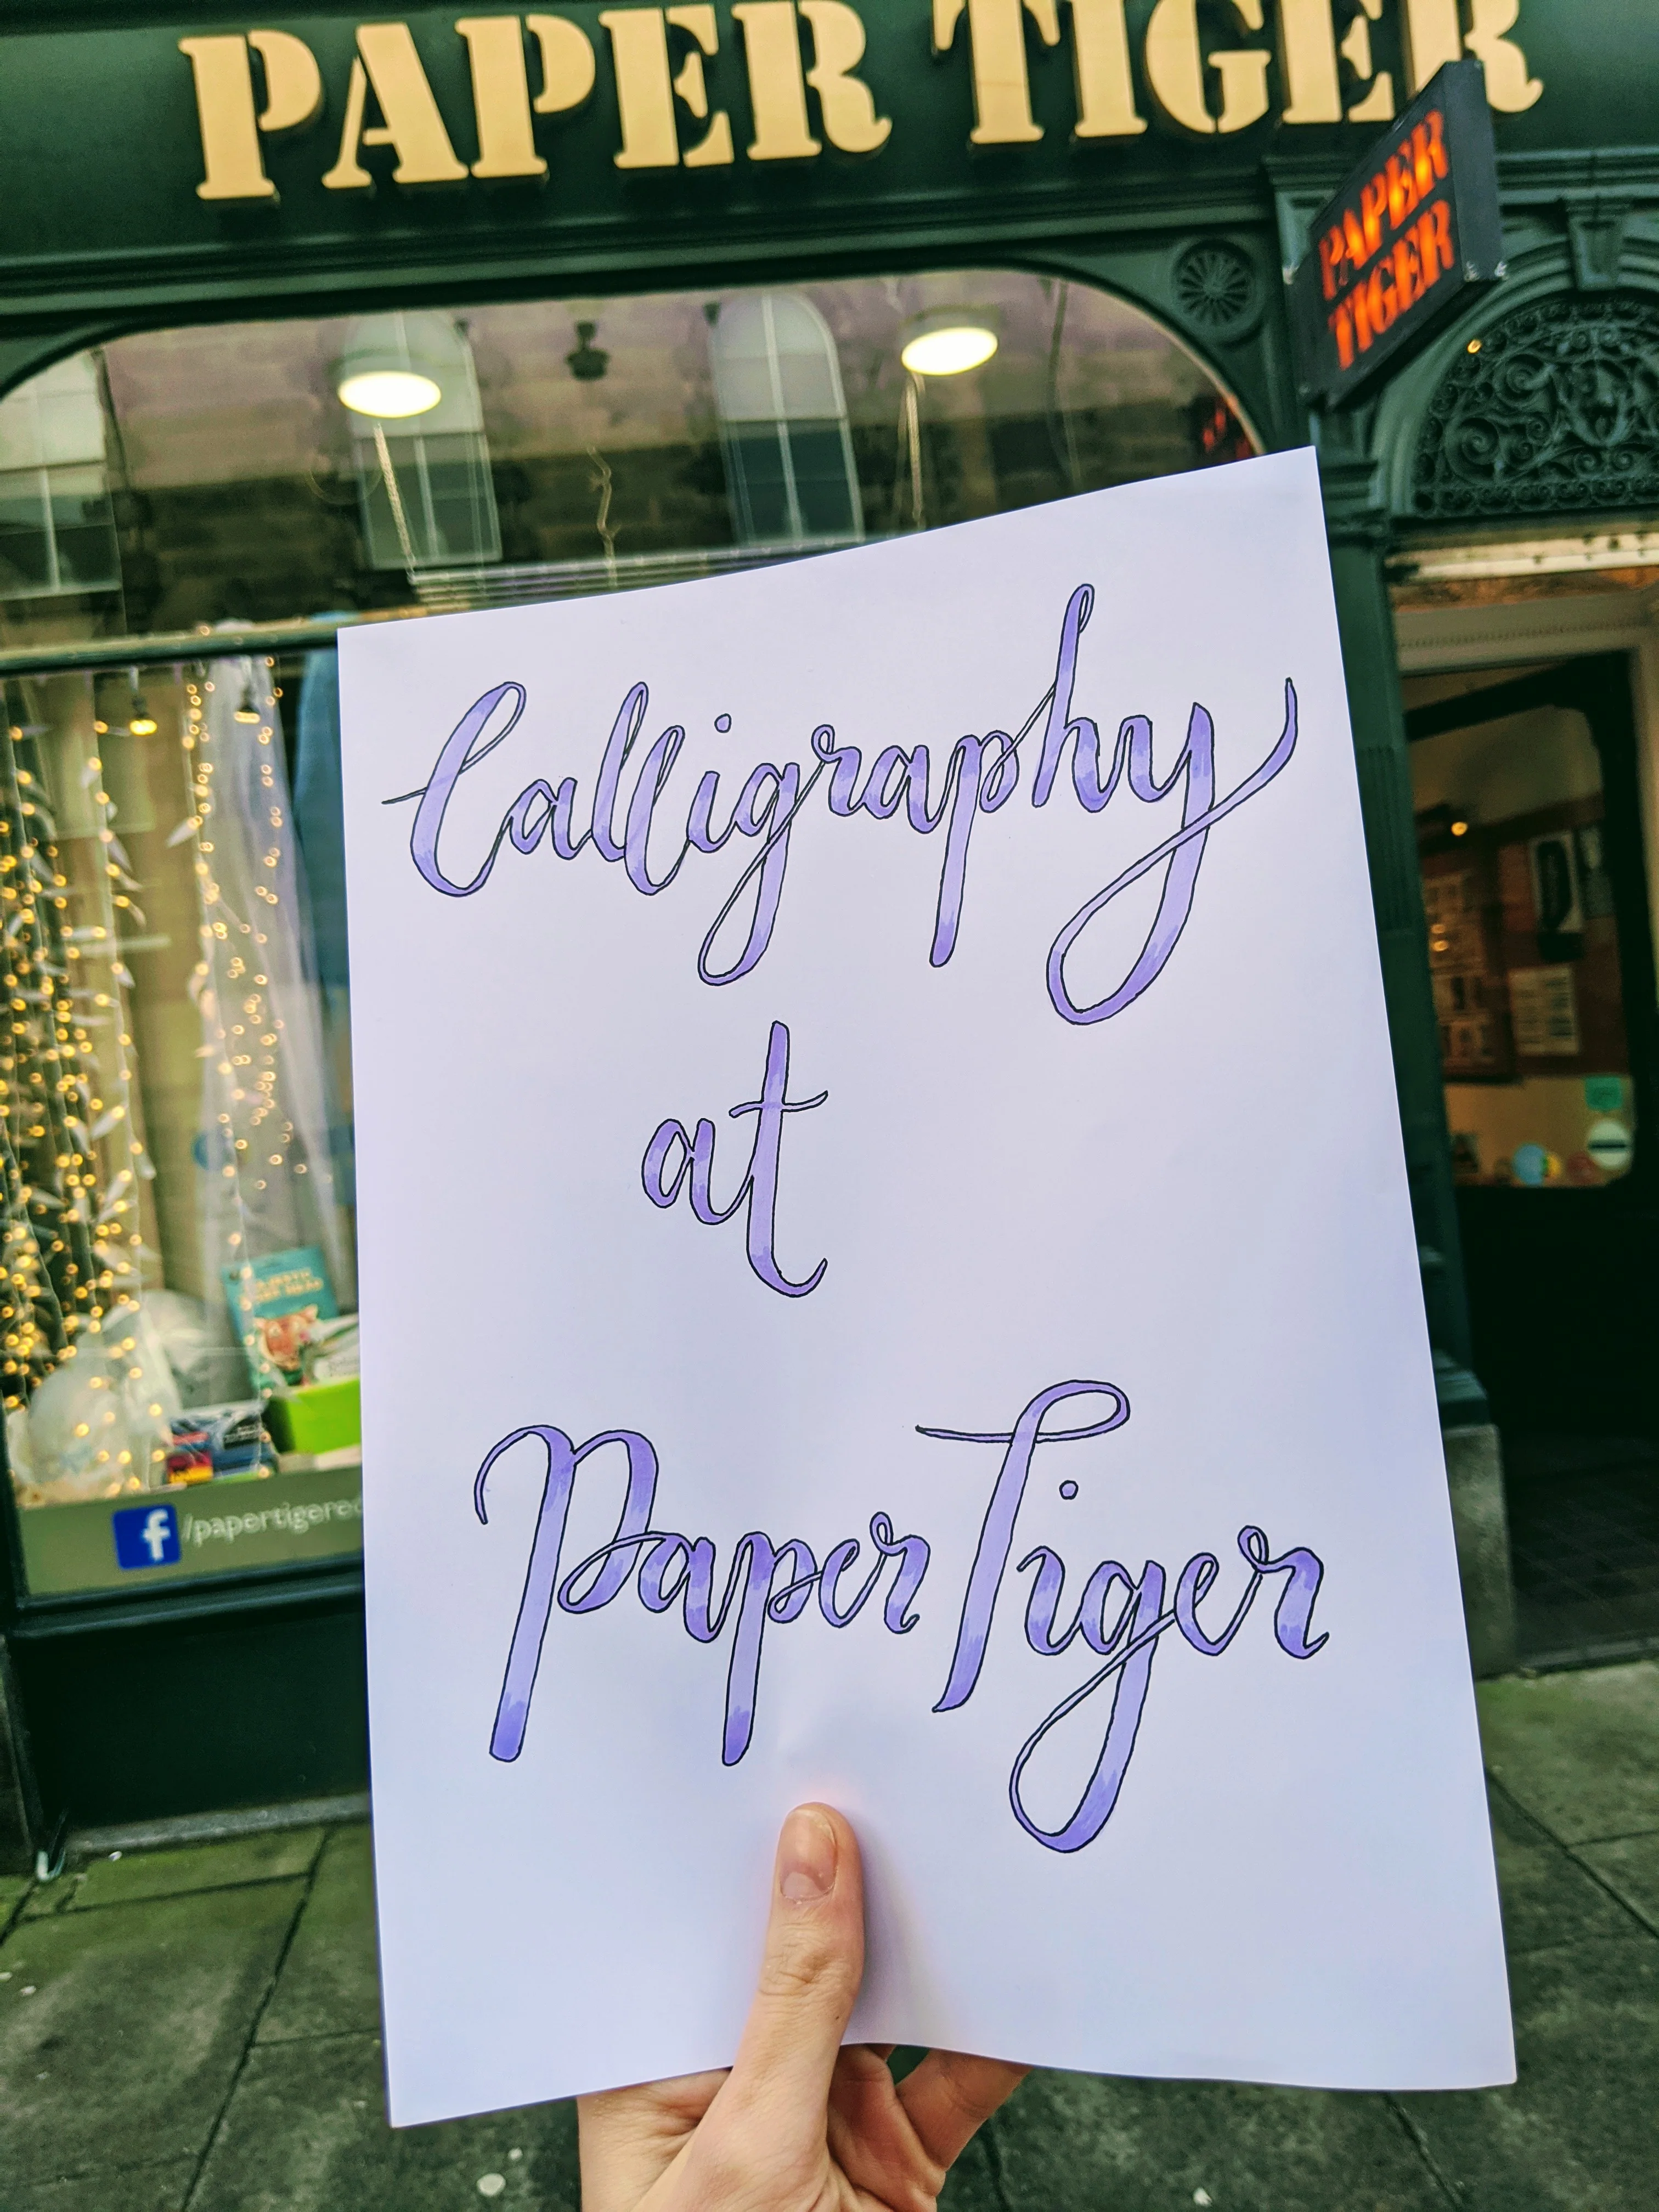 PAPER TIGER
PAPER
TIGER
Calligraphy
at
Paper Tiger
f /papertigere